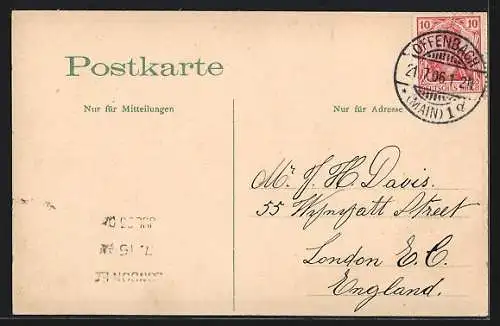 10 10
OFFENBACH
21.7.06.
* (MAIN) 1
DEUTSCHES REICH
Postkarte
Nur für Mitteilungen
Nur für Adresse
Mr. J. H. Davis.
55 Street
London E. C.
England.
7. 15
LONDON E.C